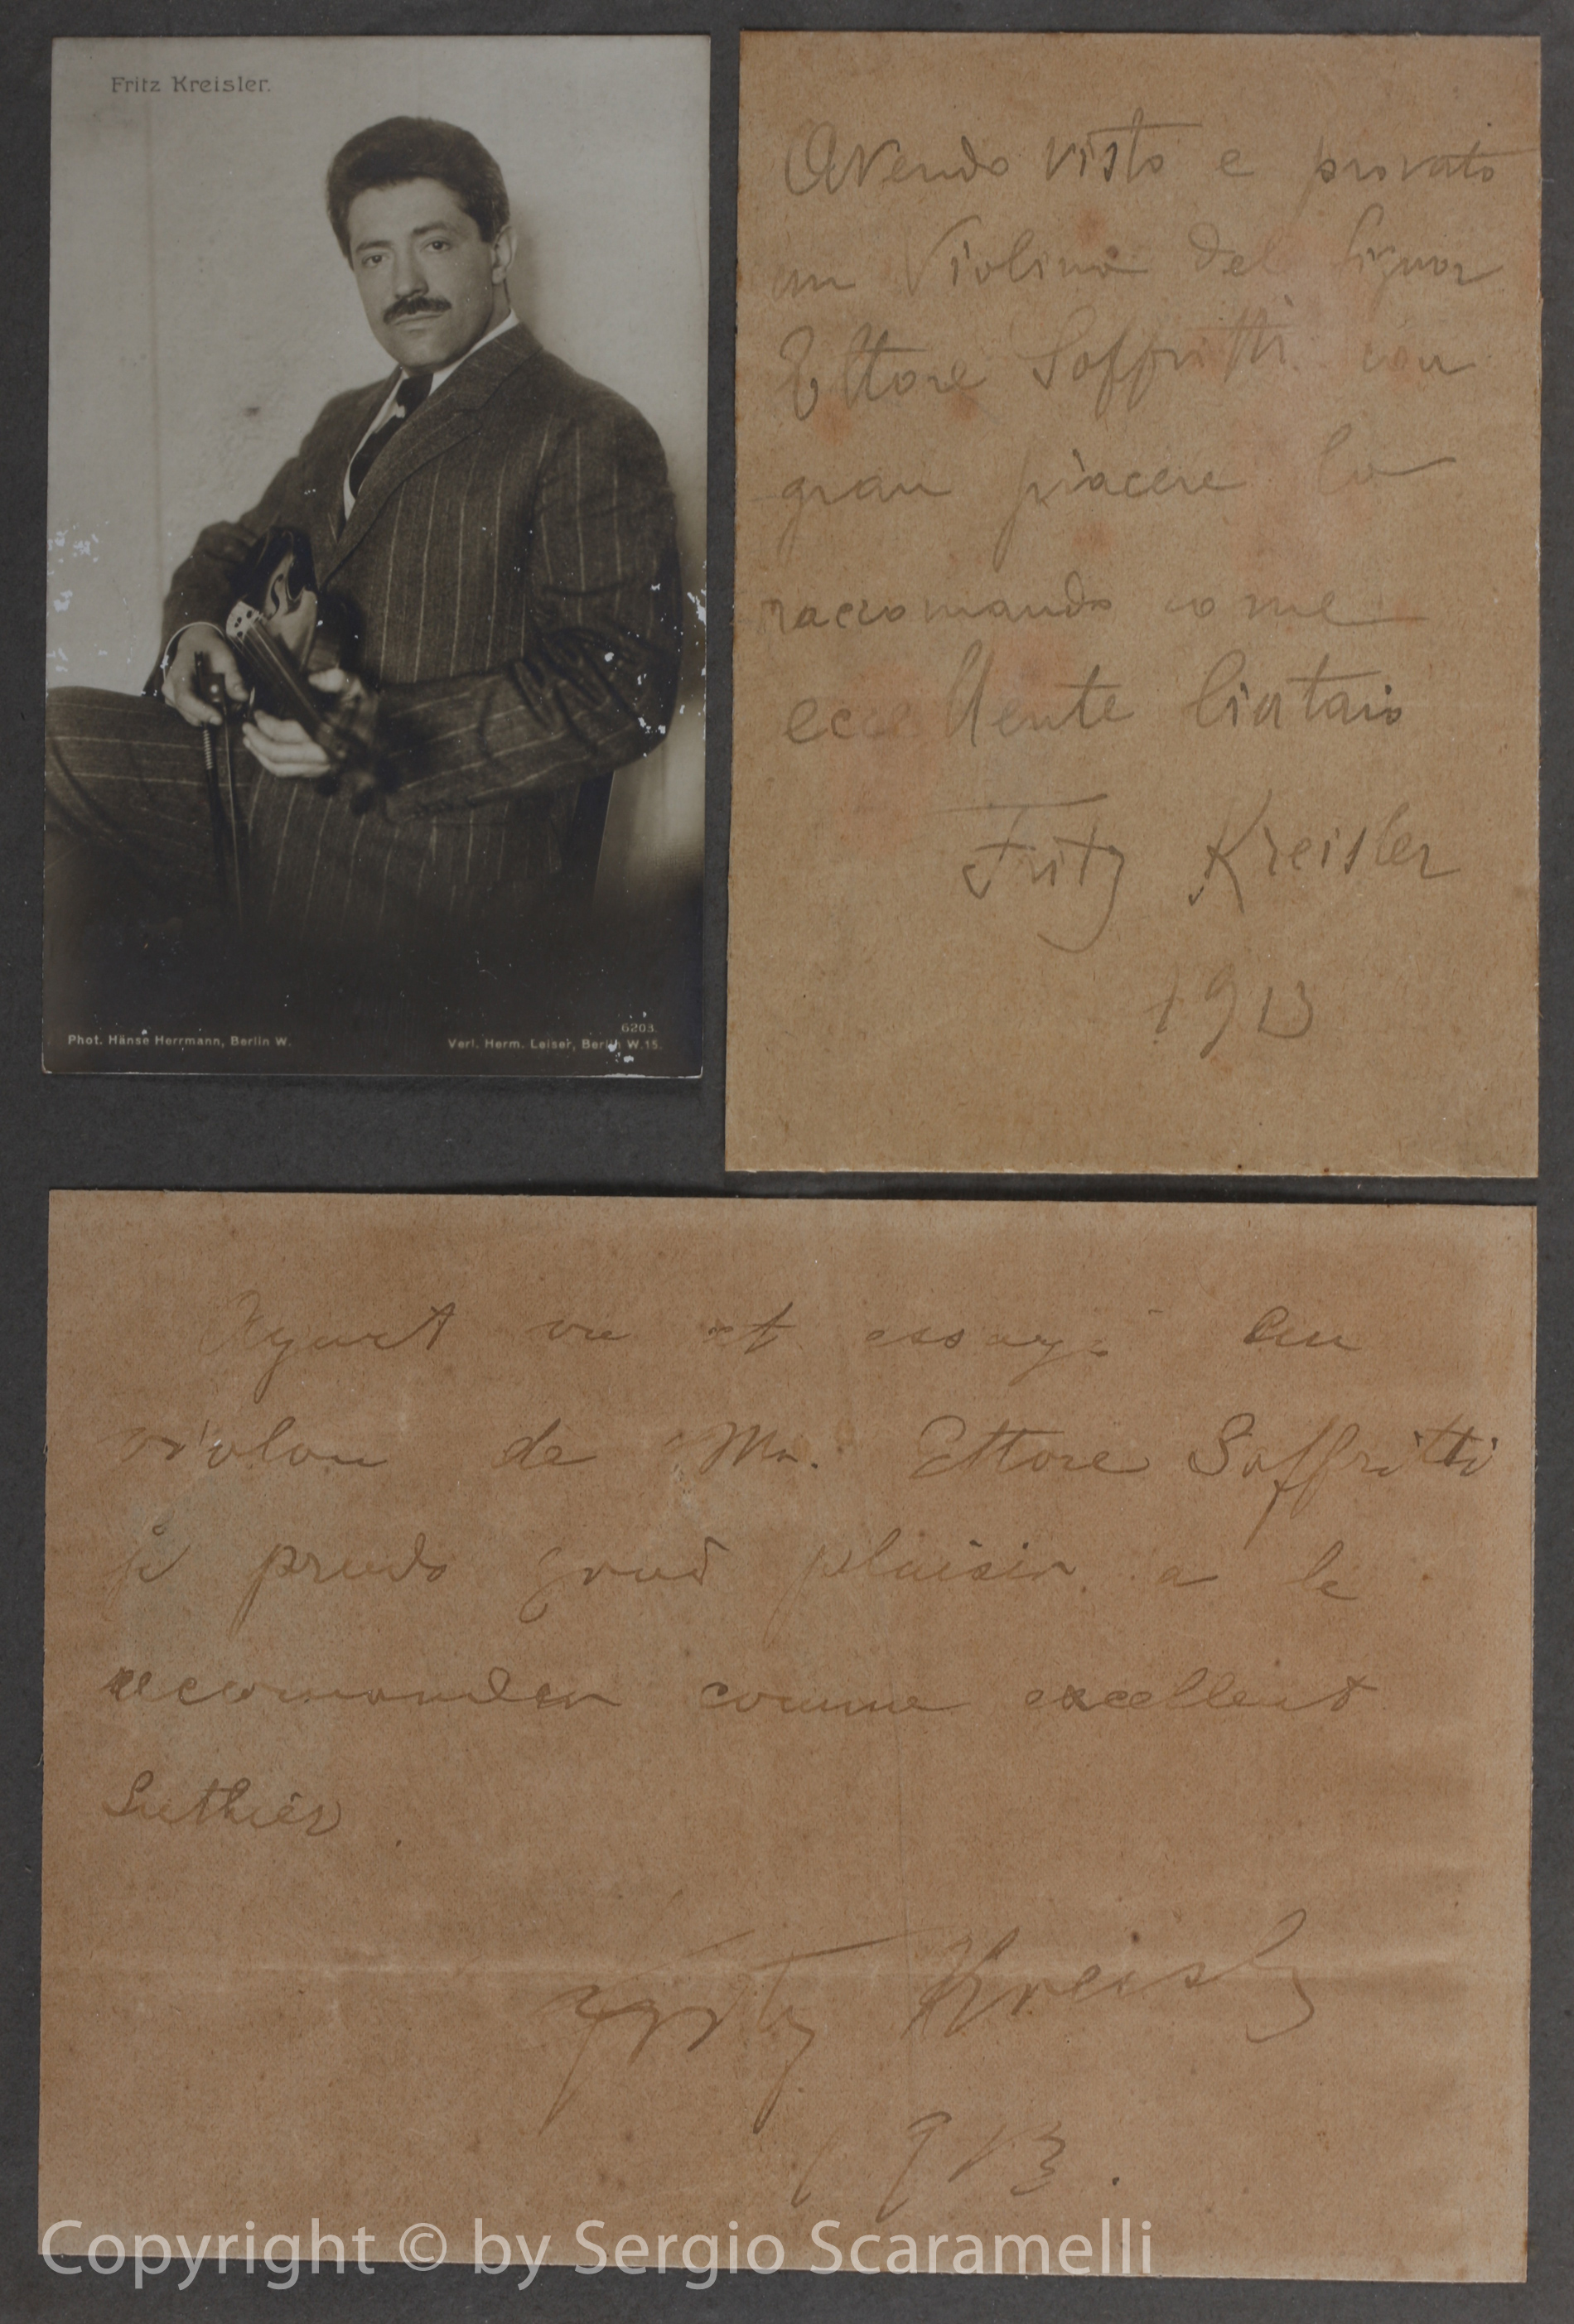 Fritz Kreisler.
6203.
Phot. Hänse Herrmann, Berlin W.
Verl. Herm. Leiser, Berlin W.15.
Avendo visto e provato
un Violino del Signor
Ettore Soffritti con
gran piacere lo
raccomando come
eccellente liutaio
Fritz Kreisler
1913
Ayant vu et essayé un
violon de Mr. Ettore Soffritti
je prends grand plaisir a le
reccomander comme excellent
Luthier.
Fritz Kreisler
1913.
Copyright © by Sergio Scaramelli